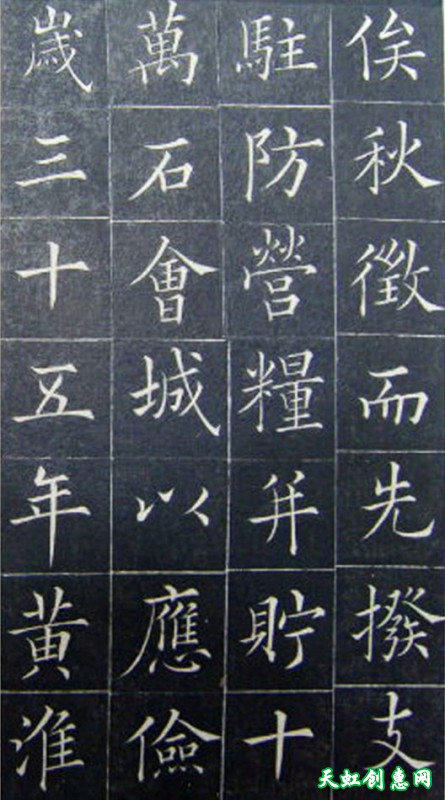 俟秋徵而先撥支
駐防營糧并貯十
萬石會城以應儉
歲三十五年黃淮
天虹创惠网